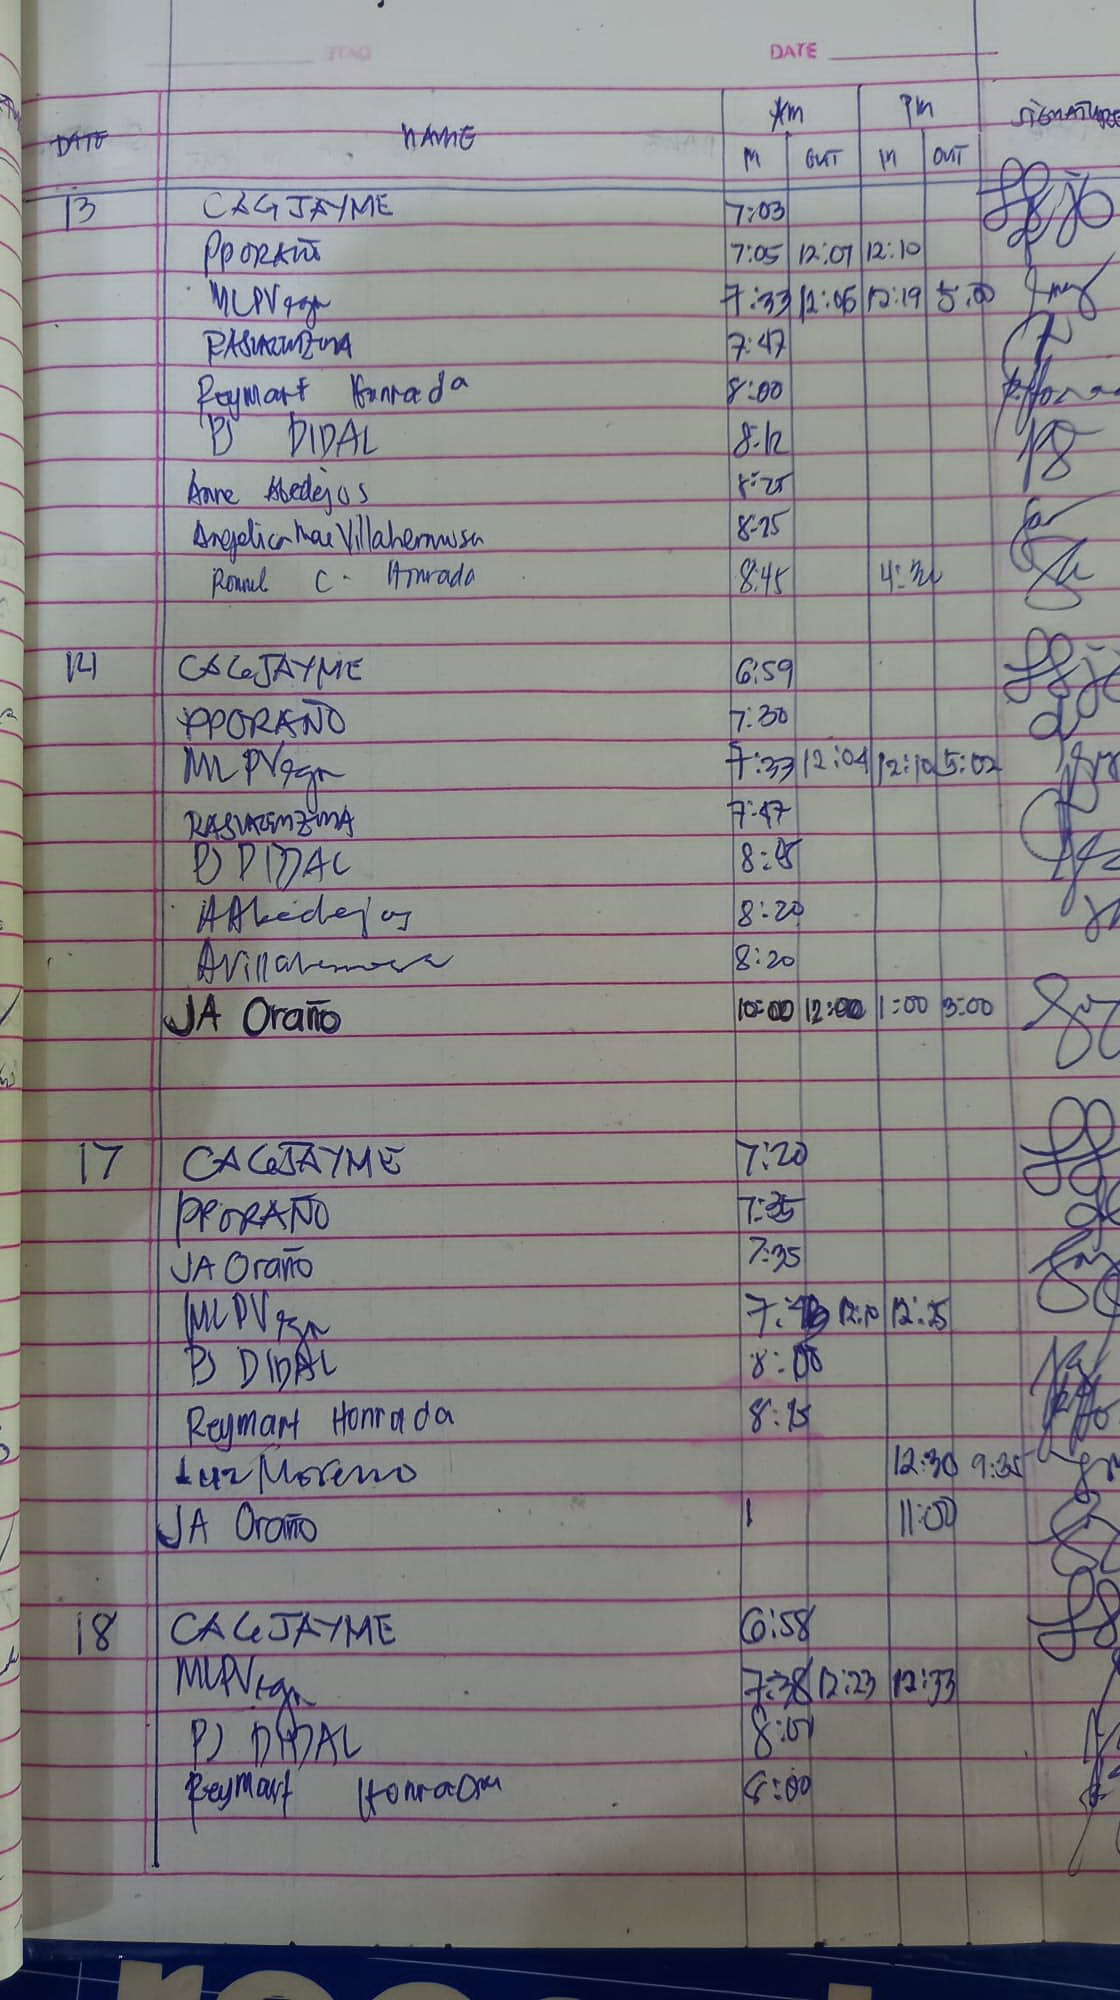 DATE
DATE NAME AM PM SIGNATURE
IN OUT IN OUT
13 CAGJAYME 7:03
PPORAÑO 7:05 12:07 12:10
MLPVegn 7:33 12:06 12:19 5:00
7:47
Reymart Honrada 8:00
PJ DIDAL 8:12
Anne Abedejos 8:25
Angelica Mae Villahermosa 8:25
Rommel C. Honrada 8:45
14 CAGJAYME 6:59
PPORAÑO 7:30
MLPVegn 7:33 12:04 12:10 5:02
7:47
PJ DIDAL
AAbedejos 8:20
AVillahermosa 8:20
JA Oraño 10:00 12:00 1:00 3:00
17 CAGJAYME 7:20
PPORAÑO 7:35
JA Oraño 7:35
MLPVegn 12:10 12:25
PJ DIDAL 8:00
Reymart Honrada 8:15
Luz Moreno 12:30 9:35
JA Oraño 11:00
18 CAGJAYME 6:58
MLPVegn 7:38 12:23 12:33
PJ DIDAL 8:01
Reymart Honrada 8:00